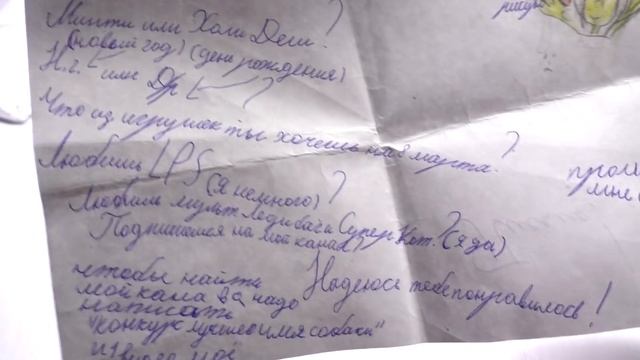 Минти или Холи Деш?
(новый год) (день рождения)
Н.г. или Др ?
Что из игрушек ты хочешь на 8 марта?
Любишь LPS (я немного)?
Любишь мульт Леди баг и Супер Кот? (я да)
Подпишишся на мой канал?
Надеюсь тебе понравилось!
чтобы найти
мой кана ва надо
написать
"конкурс лучшее имя собаки"
и 1 видео моё